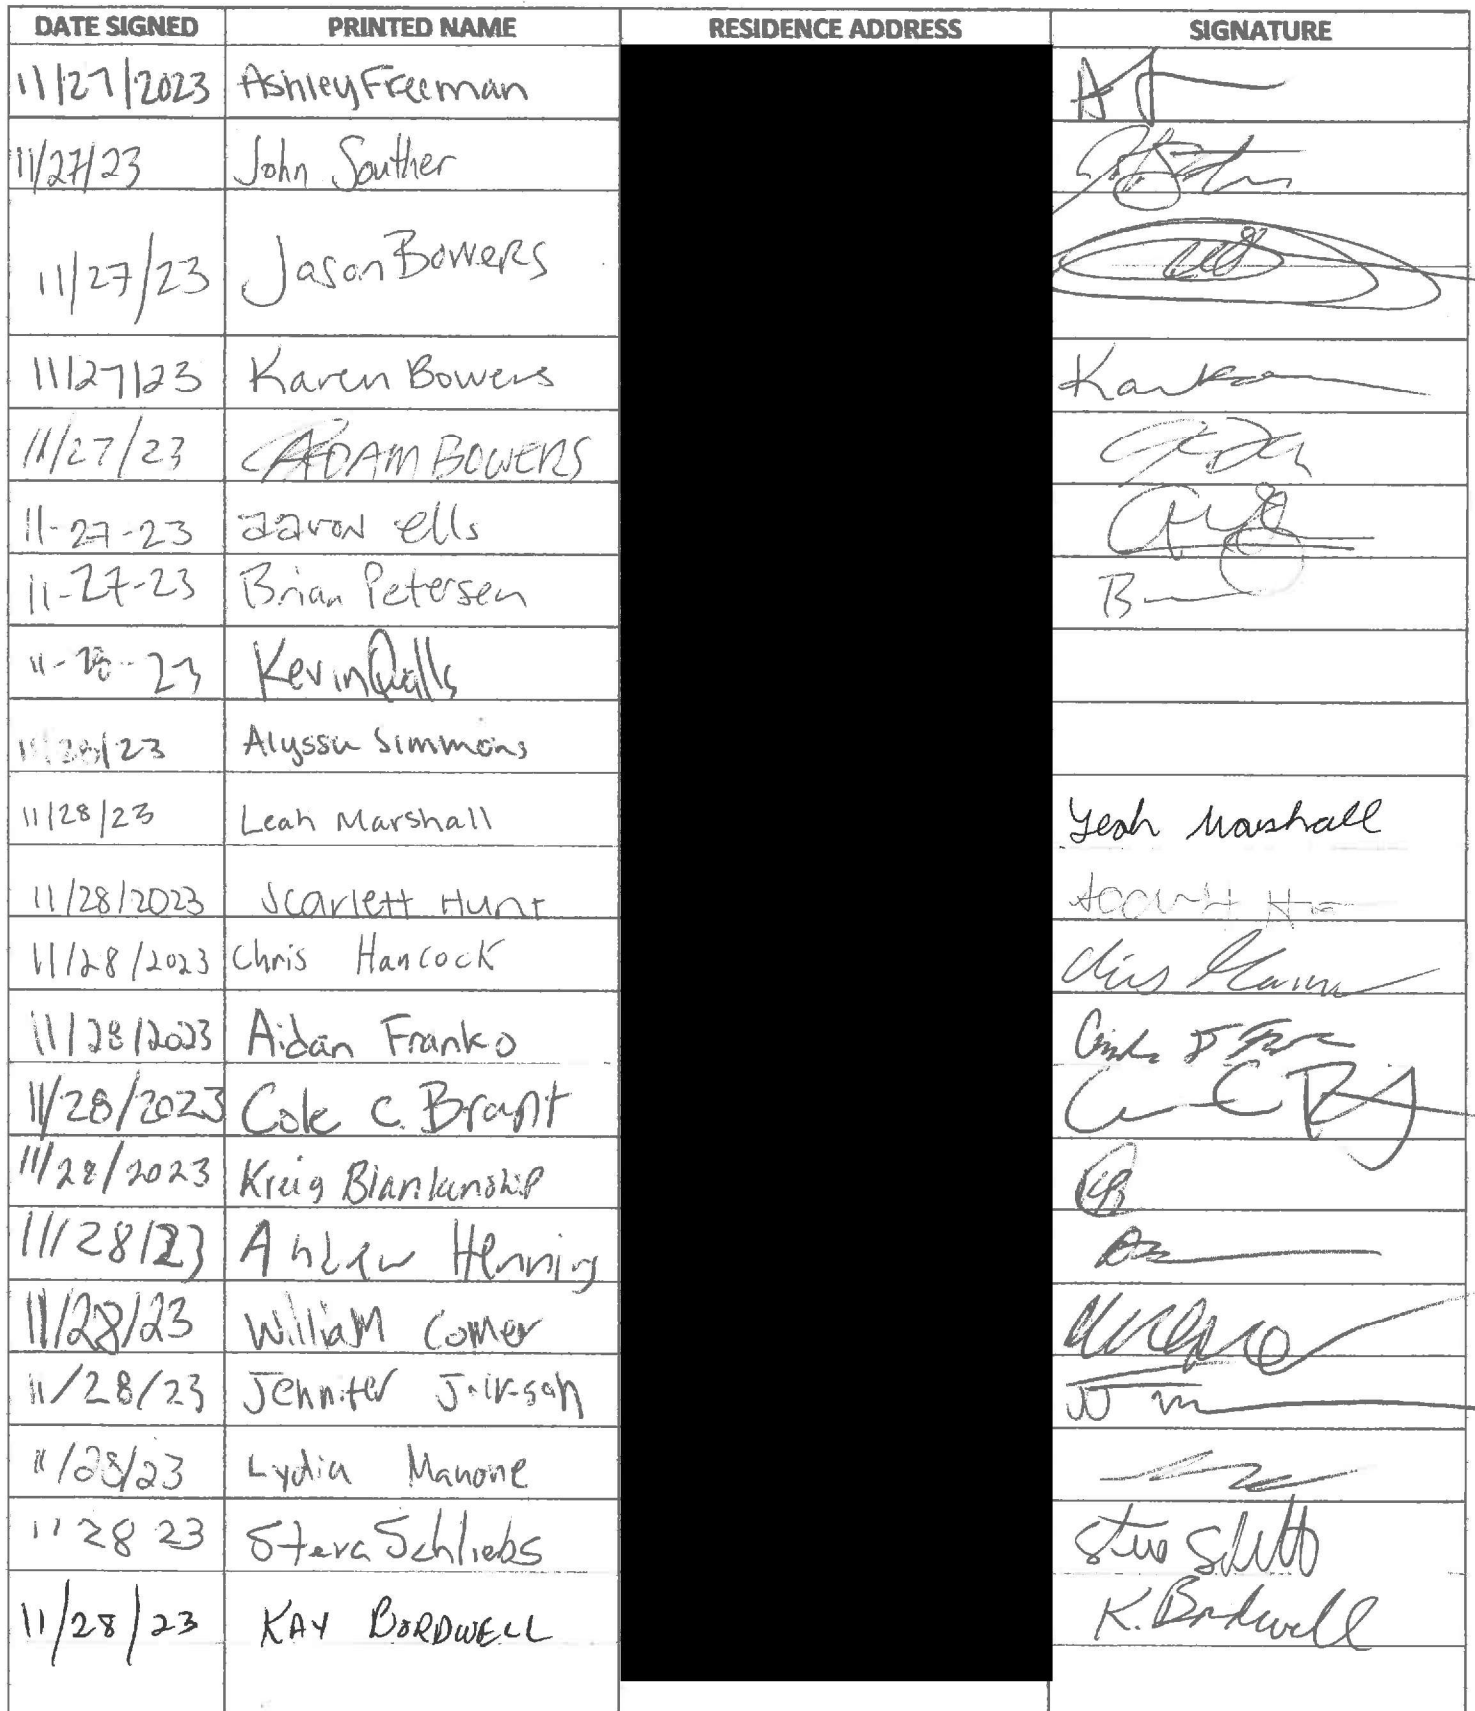 DATE SIGNED PRINTED NAME RESIDENCE ADDRESS SIGNATURE
11/27/2023 Ashley Freeman
11/27/23 John Souther
11/27/23 Jason Bowers
11/27/23 Karen Bowers
11/27/23 ADAM BOWERS
11-27-23 aaron ells
11-27-23 Brian Petersen
11-28-23 Kevin Qualls
11/28/23 Alyssa Simmons
11/28/23 Leah Marshall Leah Marshall
11/28/2023 Scarlett Hunt
11/28/2023 Chris Hancock Chris
11/28/2023 Aidan Franko
11/28/2023 Cole C. Brant
11/28/2023 Kreig Blankunship
11/28/23 Andrew Henning
11/28/23 William Comer
11/28/23 Jennifer Jackson
11/28/23 Lydia Manone
11 28 23 Steve Schliebs Steve
11/28/23 KAY BORDWELL K. Bordwell